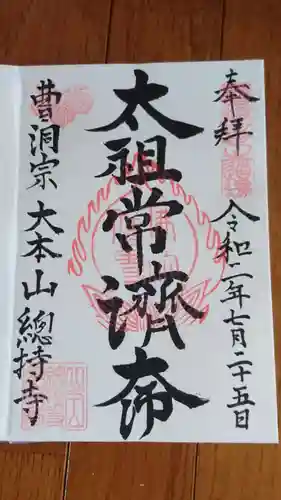 奉拝 令和二年七月二十五日
太祖常濟大師
曹洞宗 大本山 總持寺